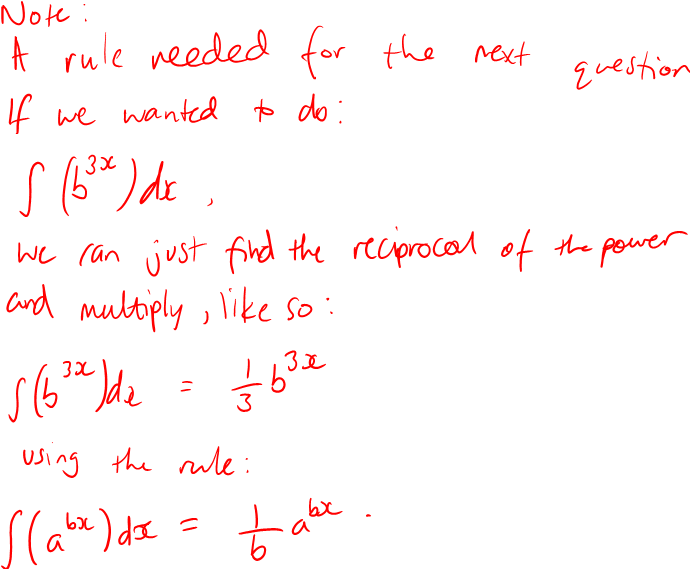 Note:
A rule needed for the next question
If we wanted to do:
∫(b^{3x})dx,
we can just find the reciprocal of the power
and multiply, like so:
∫(b^{3x})dx = \frac{1}{3} b^{3x}
using the rule:
∫(a^{bx})dx = \frac{1}{b} a^{bx}.